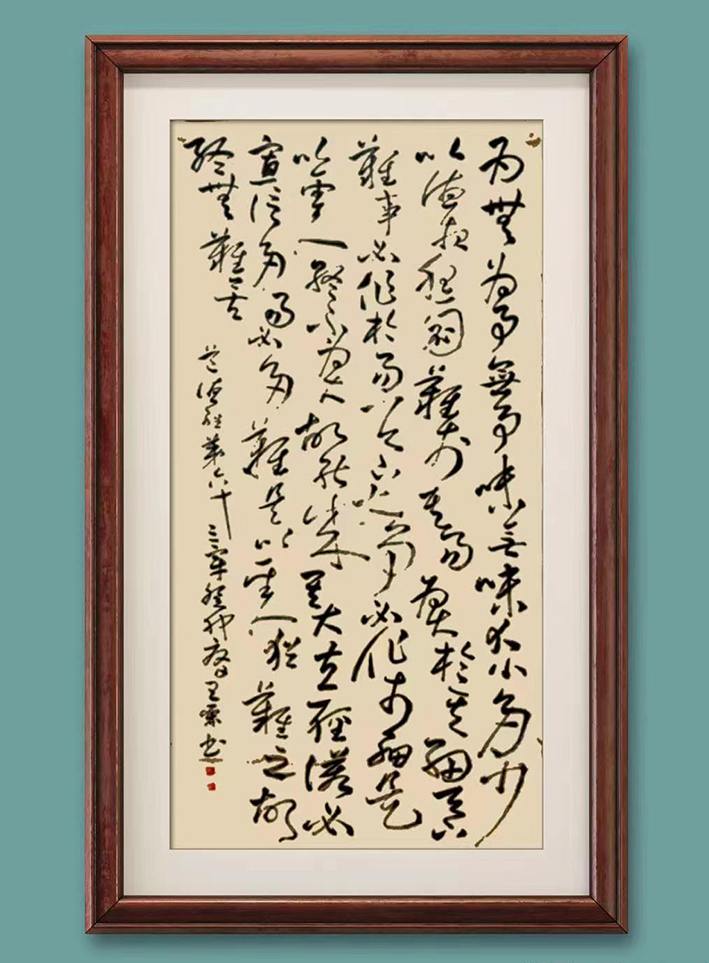 為無為事無事味無味大小多少
以德報怨圖難於其易為大於其細天下
難事必作於易天下大事必作於細是
以聖人終不為大故能成其大夫輕諾必
寡信多易必多難是以聖人猶難之故
終無難矣
道德經第六十三章 王書